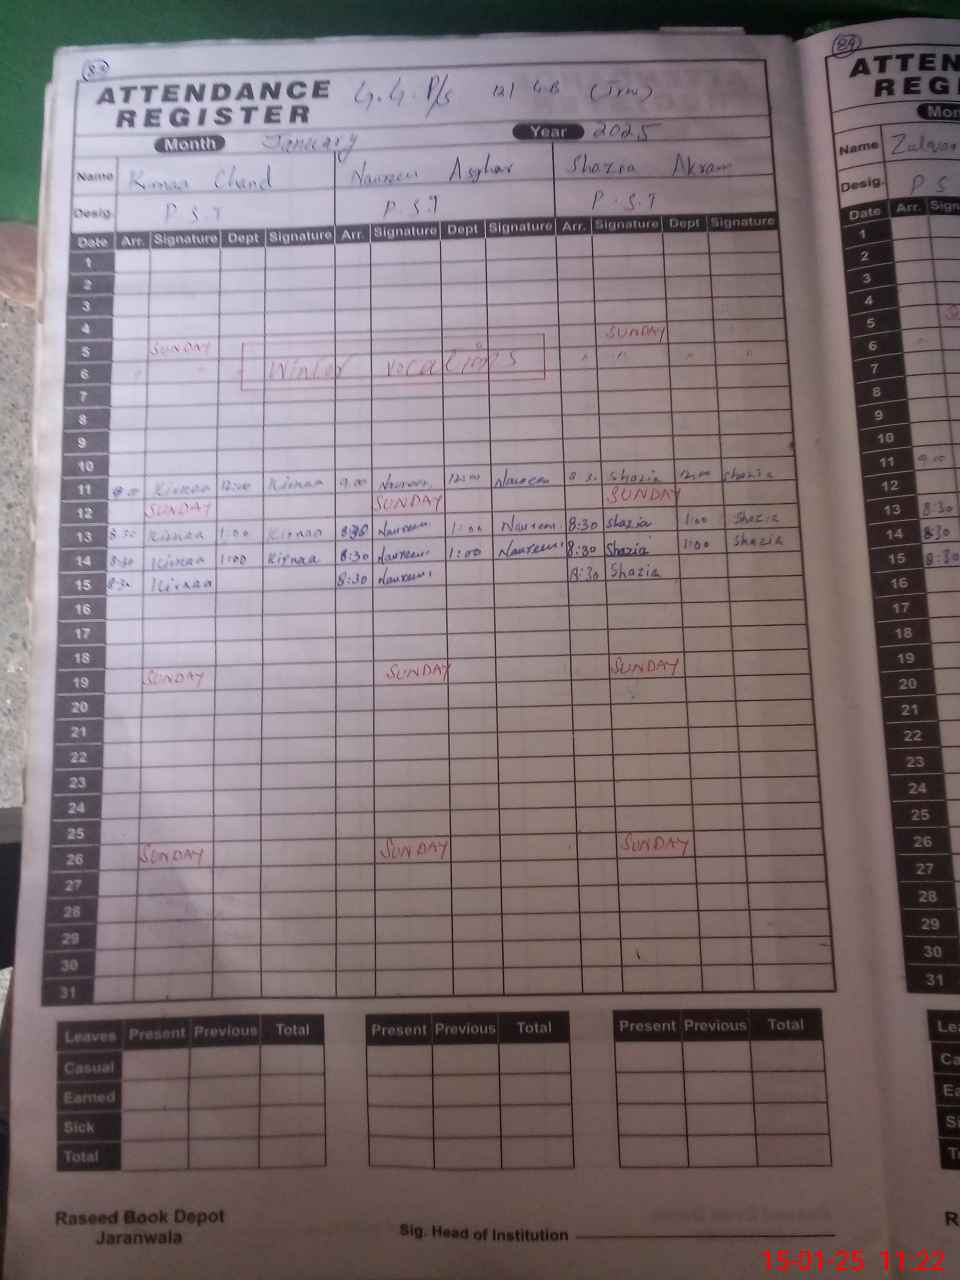 89
ATTENDANCE REGISTER G.G.P/s 121 G.B
Month January Year 2025
Name Kirnaa Chand Naureen Asghar Shazia Akram
Desig. P.S.T P.S.T P.S.T
Date Arr. Signature Dept Signature Arr. Signature Dept Signature Arr. Signature Dept Signature
1
2
3
4
5 SUNDAY SUNDAY
6 Winter vocations
7
8
9
10
11 Kirnaa 12:00 Kirnaa 9.00 Naureen 12:00 Naureen Shazia 12:00 Shazia
12 SUNDAY SUNDAY SUNDAY
13 8:30 Kirnaa 1:00 Kirnaa 8:30 Naureen 1:00 Naureen 8:30 Shazia 1:00 Shazia
14 8:30 Kirnaa 1:00 Kirnaa 8:30 Naureen 1:00 Naureen 8:30 Shazia 1:00 Shazia
15 8:30 Kirnaa 8:30 Naureen 8:30 Shazia
16
17
18
19 SUNDAY SUNDAY SUNDAY
20
21
22
23
24
25
26 SUNDAY SUNDAY SUNDAY
27
28
29
30
31
Leaves Present Previous Total Present Previous Total Present Previous Total
Casual
Earned
Sick
Total
Raseed Book Depot
Jaranwala
Sig. Head of Institution
89
ATTEN
REGI
Mon
Name
Desig. P S
Date Arr. Sign
1
2
3
4
5
6
7
8
9
10
11 9.00
12
13 8:30
14 8:30
15 8:30
16
17
18
19
20
21
22
23
24
25
26
27
28
29
30
31
Lea
Ca
Ea
Si
T
R
15-01-25 11:22